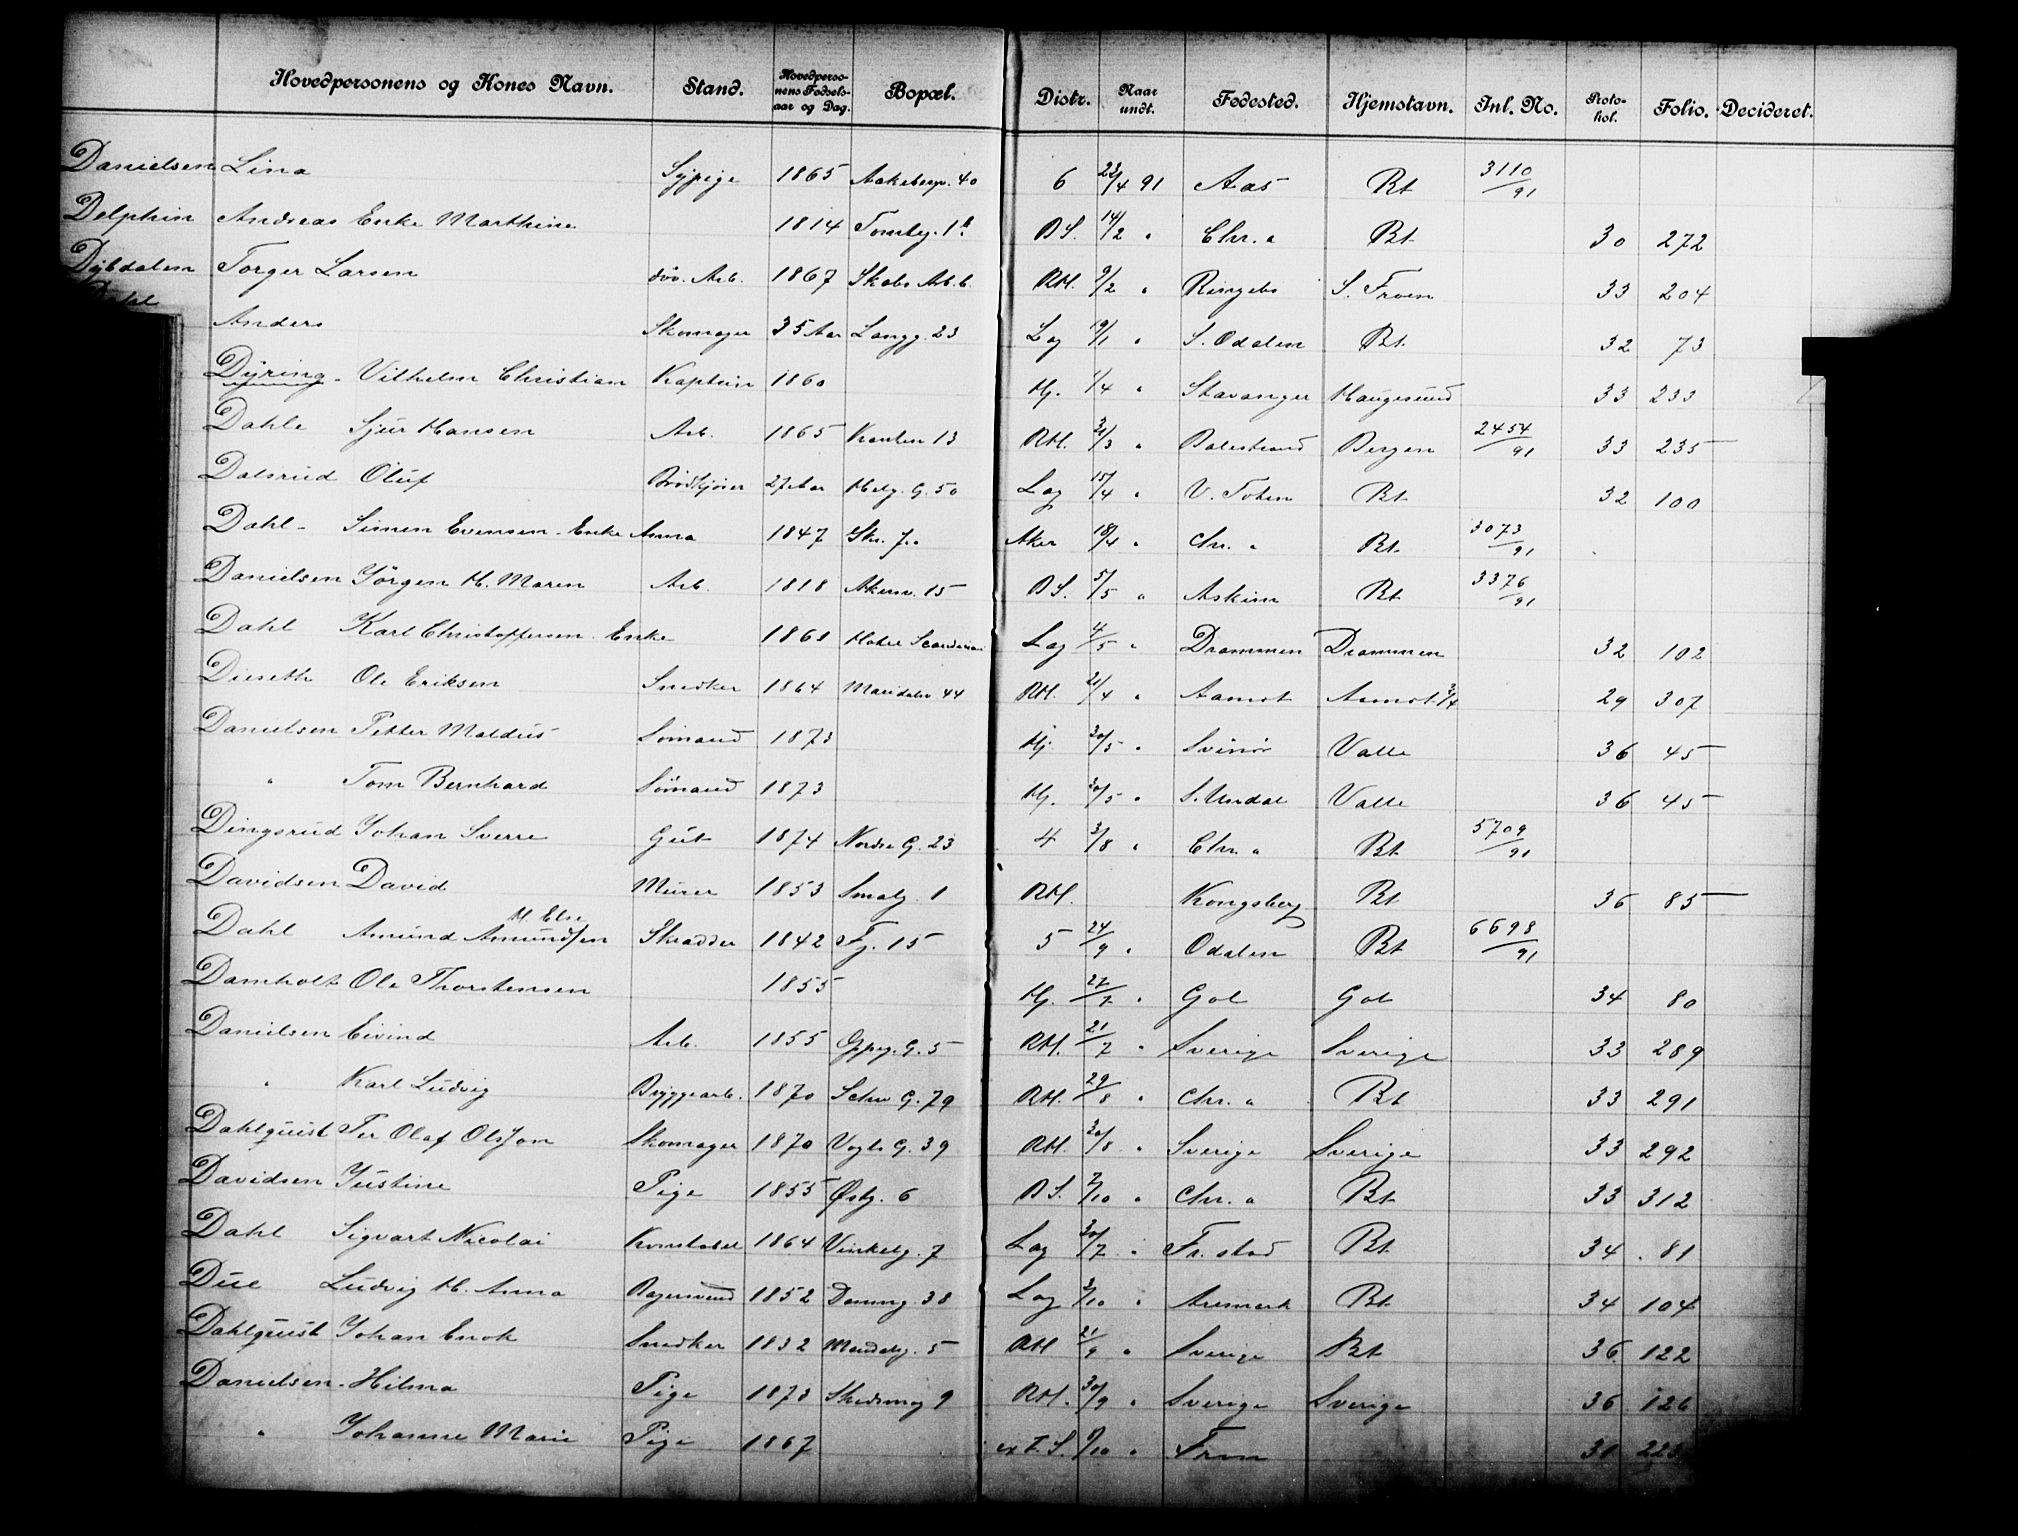 Hovedpersonens og Kones Navn. Stand. Hovedperso-nens Fødsels-aar og Dag. Bopæl. Distr. Naar undt. Fødested. Hjemstavn. Inl. No. Proto-kol. Folio. Decideret.
Danielsen Lina Sypige 1865 Aakebergv. 40 6 22/4 91 Aas Bt 3110/91
Delphin Andreas Enke Marthine 1814 Tomteg. 1b. BS. 14/2 " Chr. a Bt 30 272
Dybdalen Torger Larsen døv. Arb. 1867 RM. 9/2 " Ringebo S. Froen 33 204
Dahl Anders Skomager 35 Aar Langg. 23 Lag 19/1 " S. Odalen Bt 32 73
Dyring Vilhelm Christian Kaptein 1860 Hj. 1/4 " Stavanger Haugesund 33 233
Dahle Sjur Hansen Arb. 1865 13 RM. 21/3 " Balestrand Bergen 2454/91 33 235
Dalsrud Oluf Brødkjører 27 Aar Helg. G. 50 Lag 15/4 " V. Toten Bt 32 100
Dahl - Simen Evensen - Enke Anna 1847 Aker 18/4 " Chr. " Bt 3073/91
Danielsen Jørgen H. Maren Arb. 1818 Akersv. 15 BS. 5/5 " Askim Bt 3376/91
Dahl Karl Christoffersen Enke 1861 Hotel Scandinavi Lag 4/5 " Drammen Drammen 32 102
Dieseth Ole Eriksen Snedker 1864 Maridalsv 44 RM. 21/4 " Aamot Aamot 29 307
Danielsen Petter Maldus Sømand 1873 Hj 30/5 " Svinør Valle 36 45
" Tom Bernhard Sømand 1873 Hj. 30/5 " S. Undal Valle 36 45
Dingsrud Johan Sverre Gut 1874 Nordre G. 23 4 3/8 " Chr. a Bt 5709/91
Davidsen David Murer 1853 Smalg. 1 RM. Kongsberg Bt 36 85
Dahl Amund Amundsen H. Else Skrædder 1842 Fj. 15 5 24/9 " Odalen Bt 6698/91
Damholt Ole Thorstensen 1855 Hj. 27/7 " Gol Gol 34 80
Danielsen Eivind Arb. 1855 Oppeg. G. 5 RM. 21/7 " Sverige Sverige 33 289
" Karl Ludvig Bryggearb. 1870 Schw G. 79 RM. 29/8 " Chr. a Bt 33 291
Dahlquist Per Olaf Olsson Skomager 1870 Vogts G. 39 RM. 30/8 " Sverige Sverige 33 292
Davidsen Justine Pige 1855 Østg. 6 BS. 7/10 " Chr. a Bt 33 312
Dahl Sigvart Nicolai Konstabel 1864 Vinkelg. 7 Lag 30/7 " Fr. stad Bt 34 81
Due Ludvig H. Anna Bagersvend 1852 Dønnig. 38 Lag 3/10 " Aremark Bt 34 104
Dahlquist Johan Enok Snedker 1832 Mandalsg. 5 RM 21/9 " Sverige Bt 36 122
Danielsen - Hilma Pige 1873 Skedsmog 9 RM. 30/9 " Sverige Sverige 36 126
" Johanne Marie Pige 1867 ex T. S. 9/10 " Fron 31 223